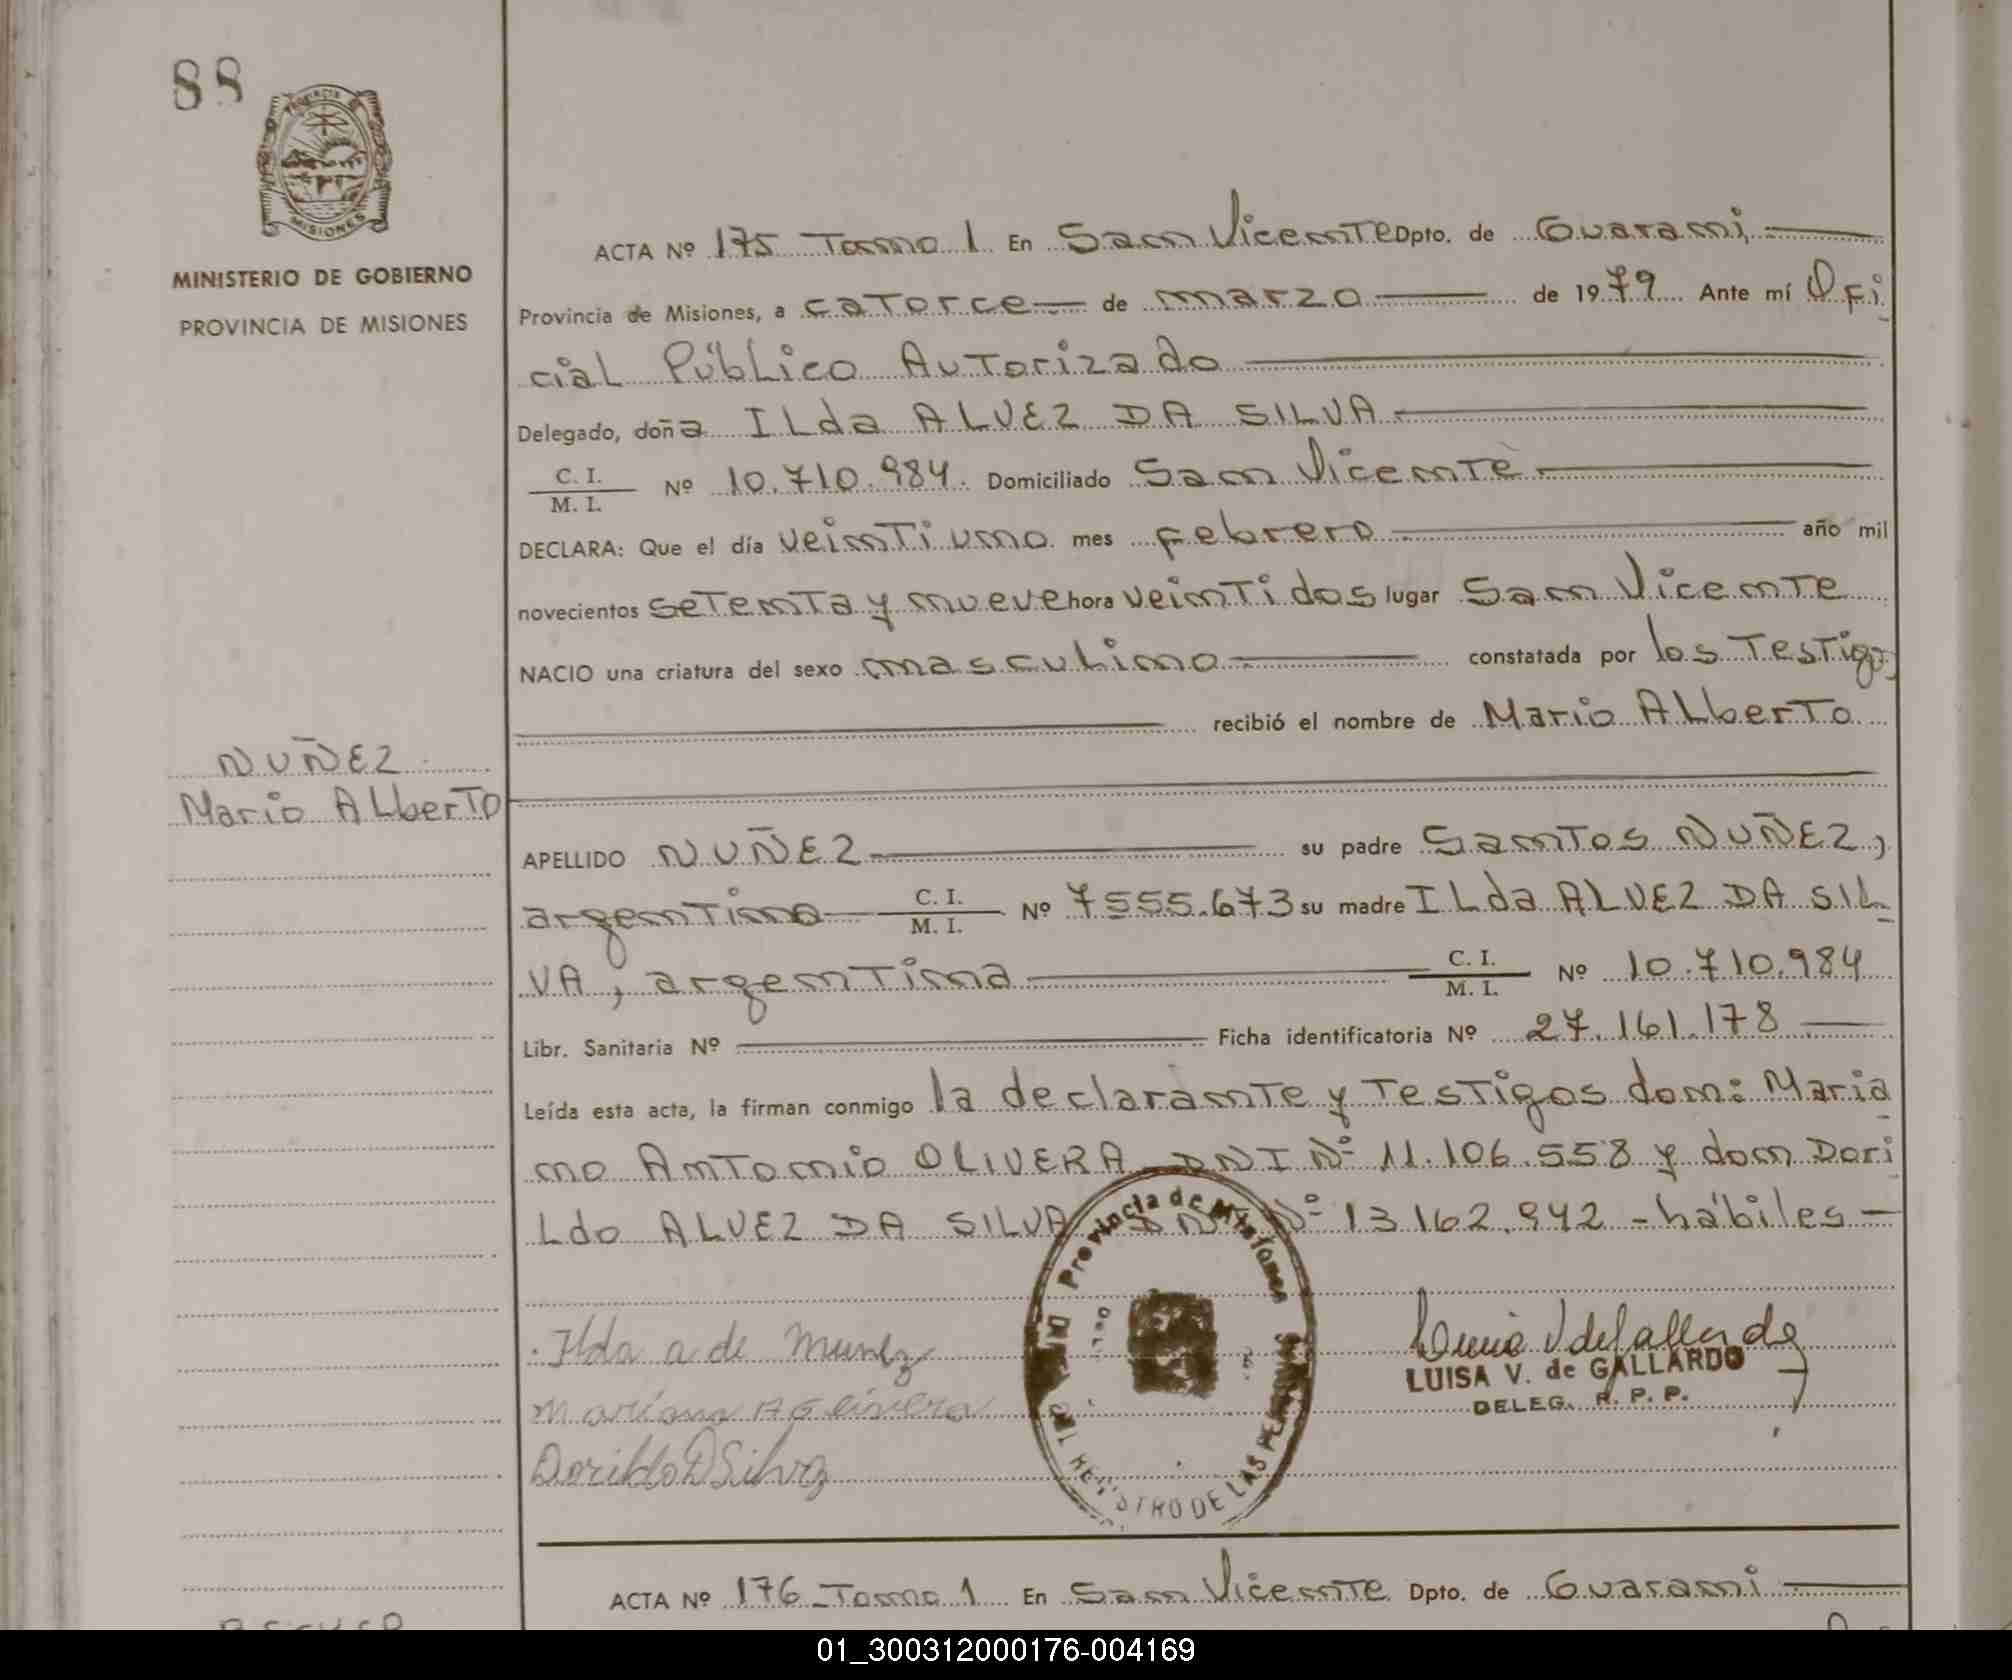 88
PROVINCIA DE
MISIONES
MINISTERIO DE GOBIERNO
PROVINCIA DE MISIONES
ACTA Nº 175 Tomo 1 En San Vicente Dpto. de Guarani
Provincia de Misiones, a catorce de marzo de 1979 Ante mí Ofi
cial Público Autorizado
Delegado, doña ILda ALVEZ DA SILVA
C. I.
M. I. Nº 10.710.984. Domiciliado San Vicente
DECLARA: Que el día veinti uno mes febrero año mil
novecientos setenta y nueve hora veinti dos lugar San Vicente
NACIO una criatura del sexo masculino constatada por los testigos
recibió el nombre de Mario ALberto
NUÑEZ
Mario ALberto
APELLIDO NUÑEZ su padre Santos NUÑEZ,
argentino C. I. M. I. Nº 7555.673 su madre ILda ALVEZ DA SIL
VA, argentina C. I. M. I. Nº 10.710.984
Libr. Sanitaria Nº Ficha identificatoria Nº 27.161.178
Leída esta acta, la firman conmigo la declarante y testigos don: Maria
no Antonio OLIVERA DNI Nº 11.106.558 y don Dori
Ldo ALVEZ DA SILVA DNI Nº 13.162.942 - hábiles -
Provincia de Misiones
REGISTRO DE LAS PERSONAS
Ilda a de Nuñez
Dorildo D Silva
LUISA V. de GALLARDO
DELEG. R. P. P.
ACTA Nº 176 - Tomo 1 En San Vicente Dpto. de Guarani
01_300312000176-004169